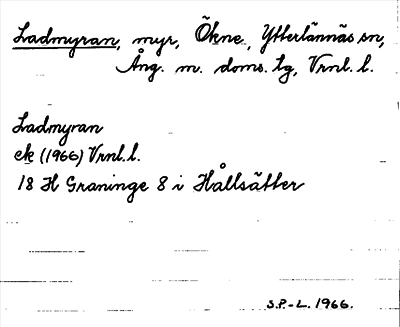 Ladmyran, myr, Ökne, Ytterlännäs sn,
Ång. m. doms. tg, Vrnl. l.
Ladmyran
ek (1966) Vrnl. l.
18 H Graninge 8 i Hållsätter
S.P.-L. 1966.